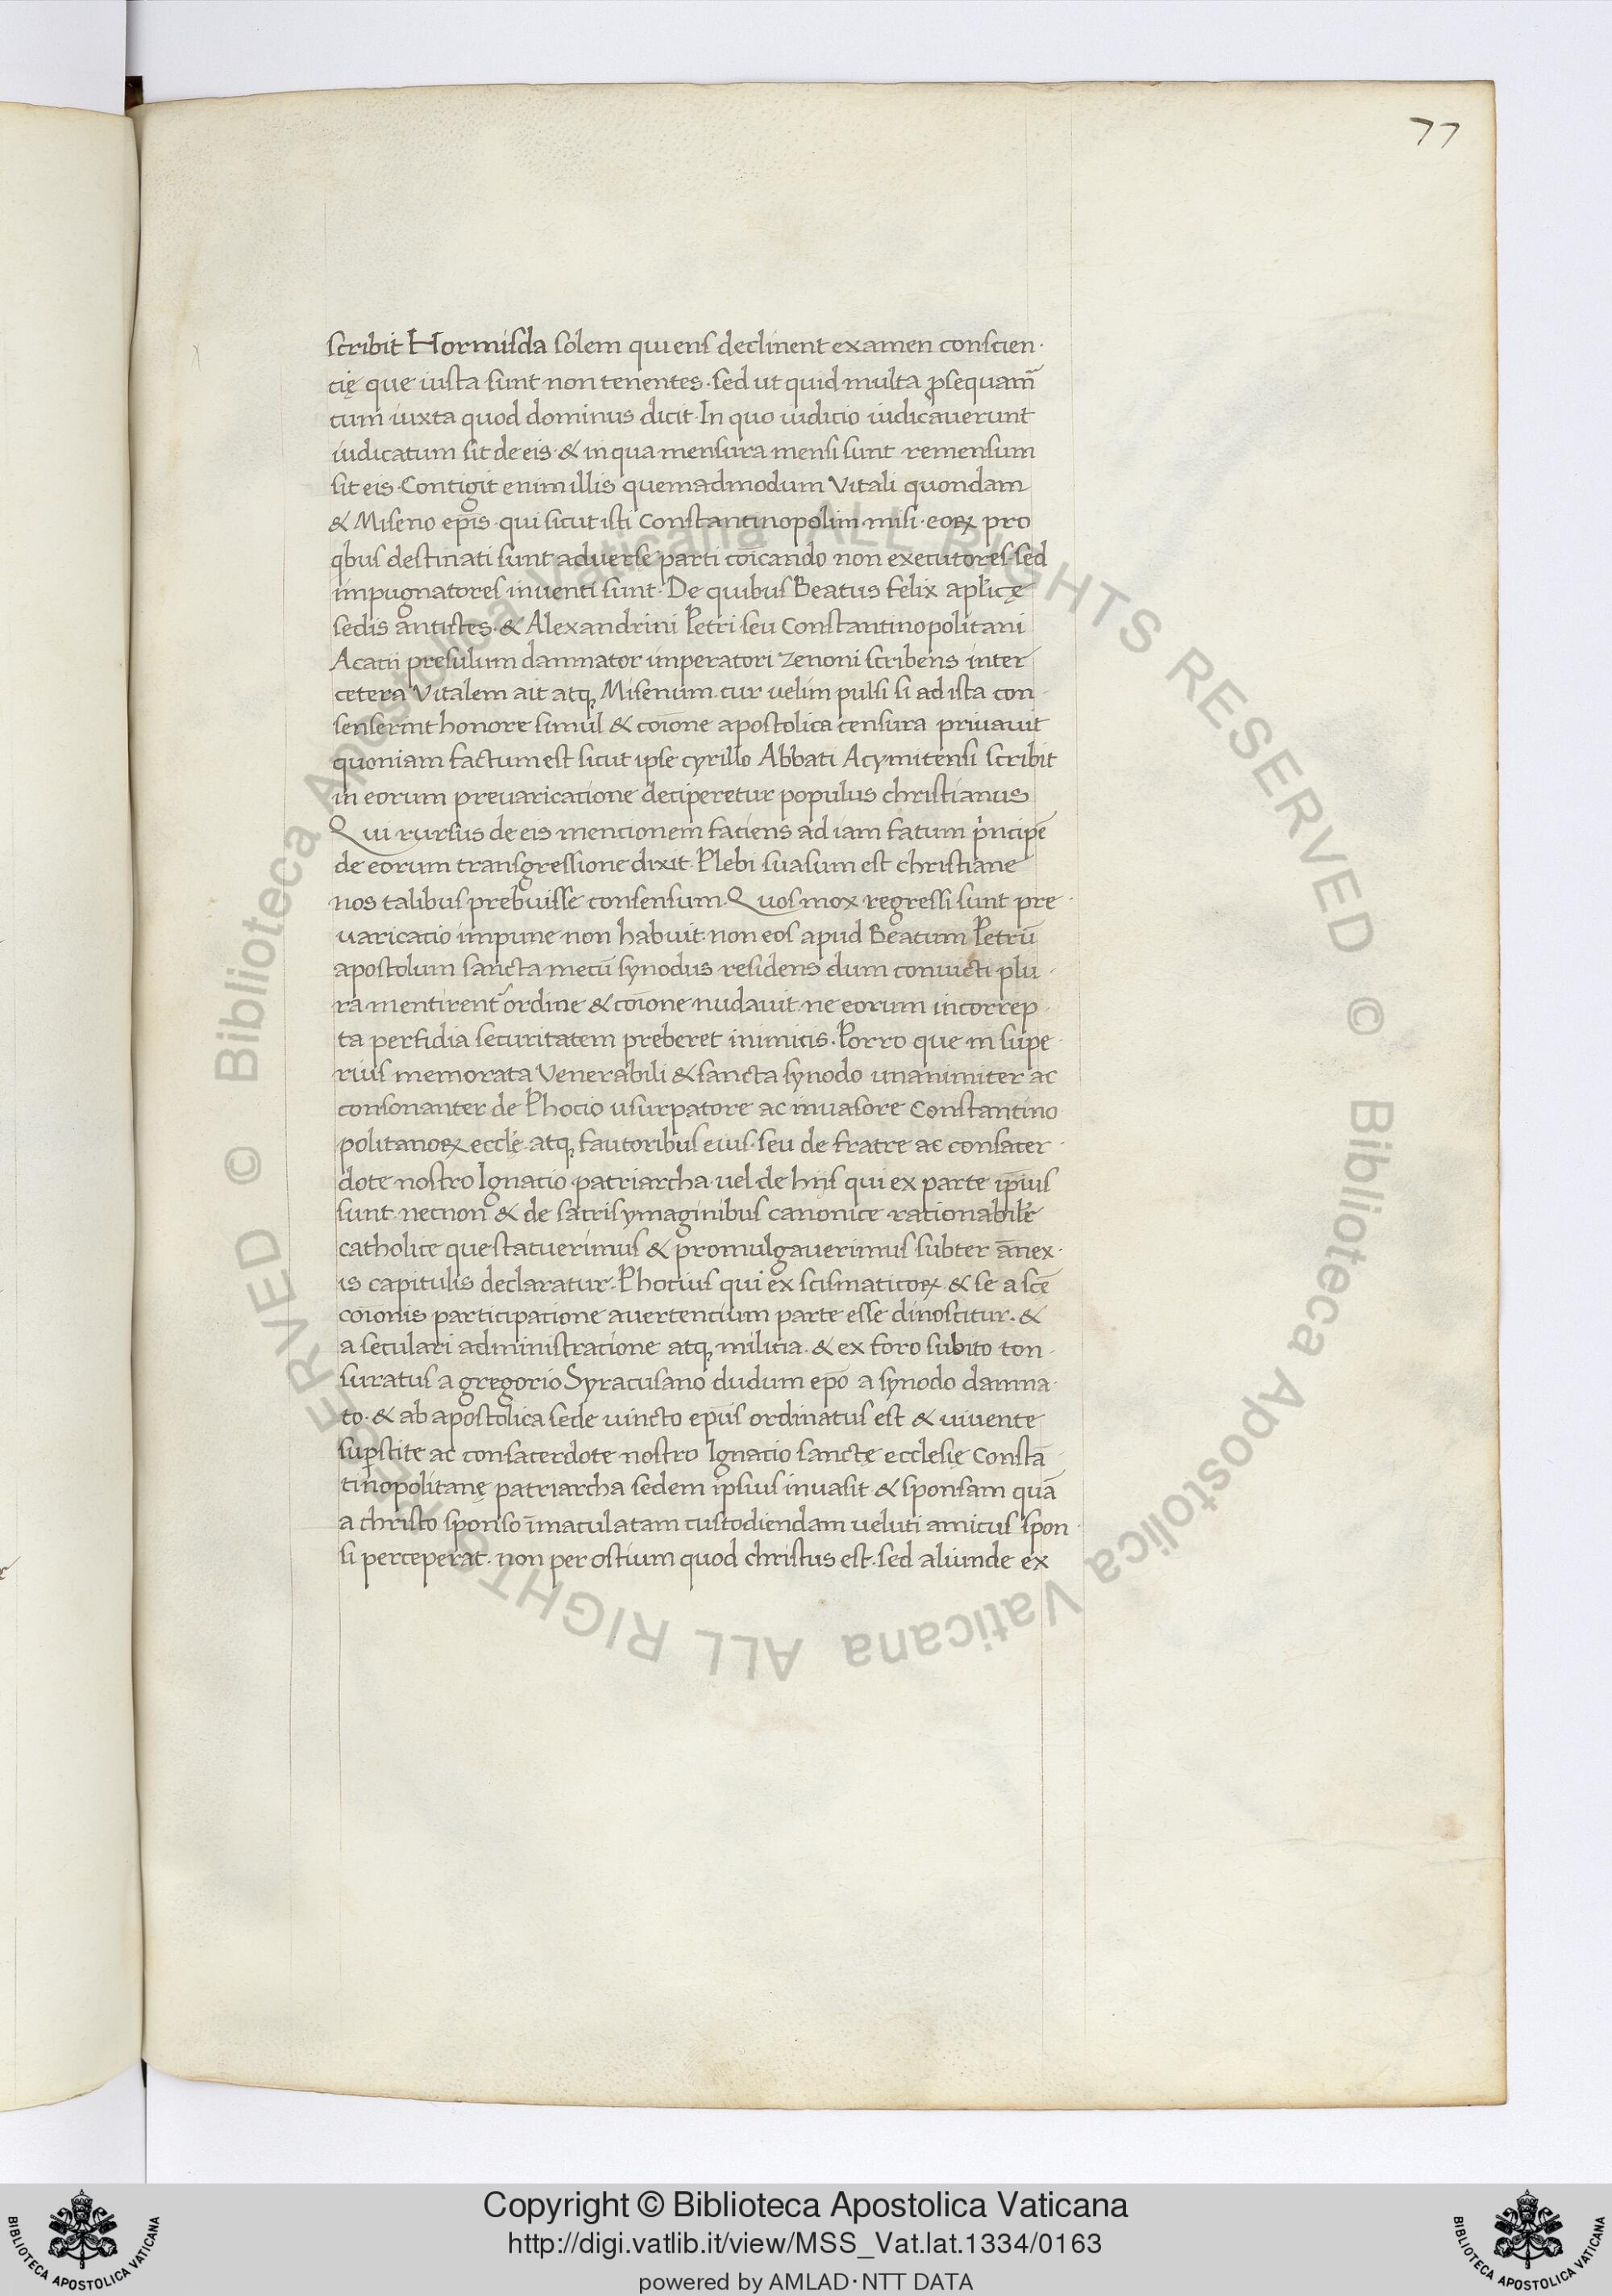 77
scribit Hormisda solem quiens declinent examen conscien·
cię que iusta sunt non tenentes · sed ut quid multa ꝓsequam̃
tum iuxta quod dominus dicit · In quo iudicio iudicauerunt
iudicatum sit de eis · & in qua mensura mensi sunt remensum
sit eis · Contigit enim illis quemadmodum Vitali quondam
& Miseno ep̄is · qui sicut isti Constantinopolim misi · eoꝝ pro
qbus destinati sunt aduerse parti coīcando non executores · sed
impugnatores inuenti sunt · De quibus Beatus felix apl̄icę
sedis antistes · & Alexandrini Petri seu Constantinopolitani
Acatii presulum damnator imperatori zenoni scribens inter
cetera Vitalem ait atq, Misenum · cur uelim pulsi si ad ista con·
senserint honore simul & coīone apostolica censura priuauit
quoniam factum est sicut ipse cyrillo Abbati Acymitensi scribit
in eorum preuaricatione deciperetur populus christianus
Qui rursus de eis mencionem faciens ad iam fatum p̓ncipē
de eorum transgressione dixit · Plebi suasum est christiane
nos talibus prebuisse consensum · Quos mox regressi sunt pre·
uaricatio impune non habuit · non eos apud Beatum Petrū
apostolum sancta mecū synodus residens dum conuicti plu·
ra mentirent̃ ordine & coīone nudauit · ne eorum incorrep·
ta perfidia securitatem preberet inimicis · Porro que in supe·
rius memorata Venerabili & sancta synodo unanimiter ac
consonanter de Phocio usurpatore ac inuasore Constantino
politanoꝝ ecclę · atq, fautoribus eius · seu de fratre ac consacer·
dote nostro Ignacio patriarcha · uel de hiis qui ex parte ip̄ius
sunt · necnon & de sacris ymaginibus canonice rationabilr̄
catholice que statuerimus & promulgauerimus subter ānex·
is capitulis declaratur · Phocius qui ex scismaticoꝝ & se a scē
coīonis participatione auertencium parte esse dinoscitur · &
a seculari administracione atq, milicia · & ex foro subito ton·
suratus a gregorio Syracusano dudum ep̄o a synodo damna·
to · & ab apostolica sede uincto ep̄us ordinatus est & uiuente
suꝑstite ac consacerdote nostro Ignacio sanctę ecclesię Constā·
tinopolitanę patriarcha sedem ipsius inuasit & sponsam quā
a christo sponso īmaculatam custodiendam ueluti amicus spon·
si perceperat · non per ostium quod christus est · sed aliunde ex
© Biblioteca Apostolica Vaticana ALL RIGHTS RESERVED © Biblioteca Apostolica Vaticana ALL RIGHTS RESERVED
Copyright © Biblioteca Apostolica Vaticana
http://digi.vatlib.it/view/MSS_Vat.lat.1334/0163
powered by AMLAD·NTT DATA
BIBLIOTECA APOSTOLICA VATICANA
BIBLIOTECA APOSTOLICA VATICANA